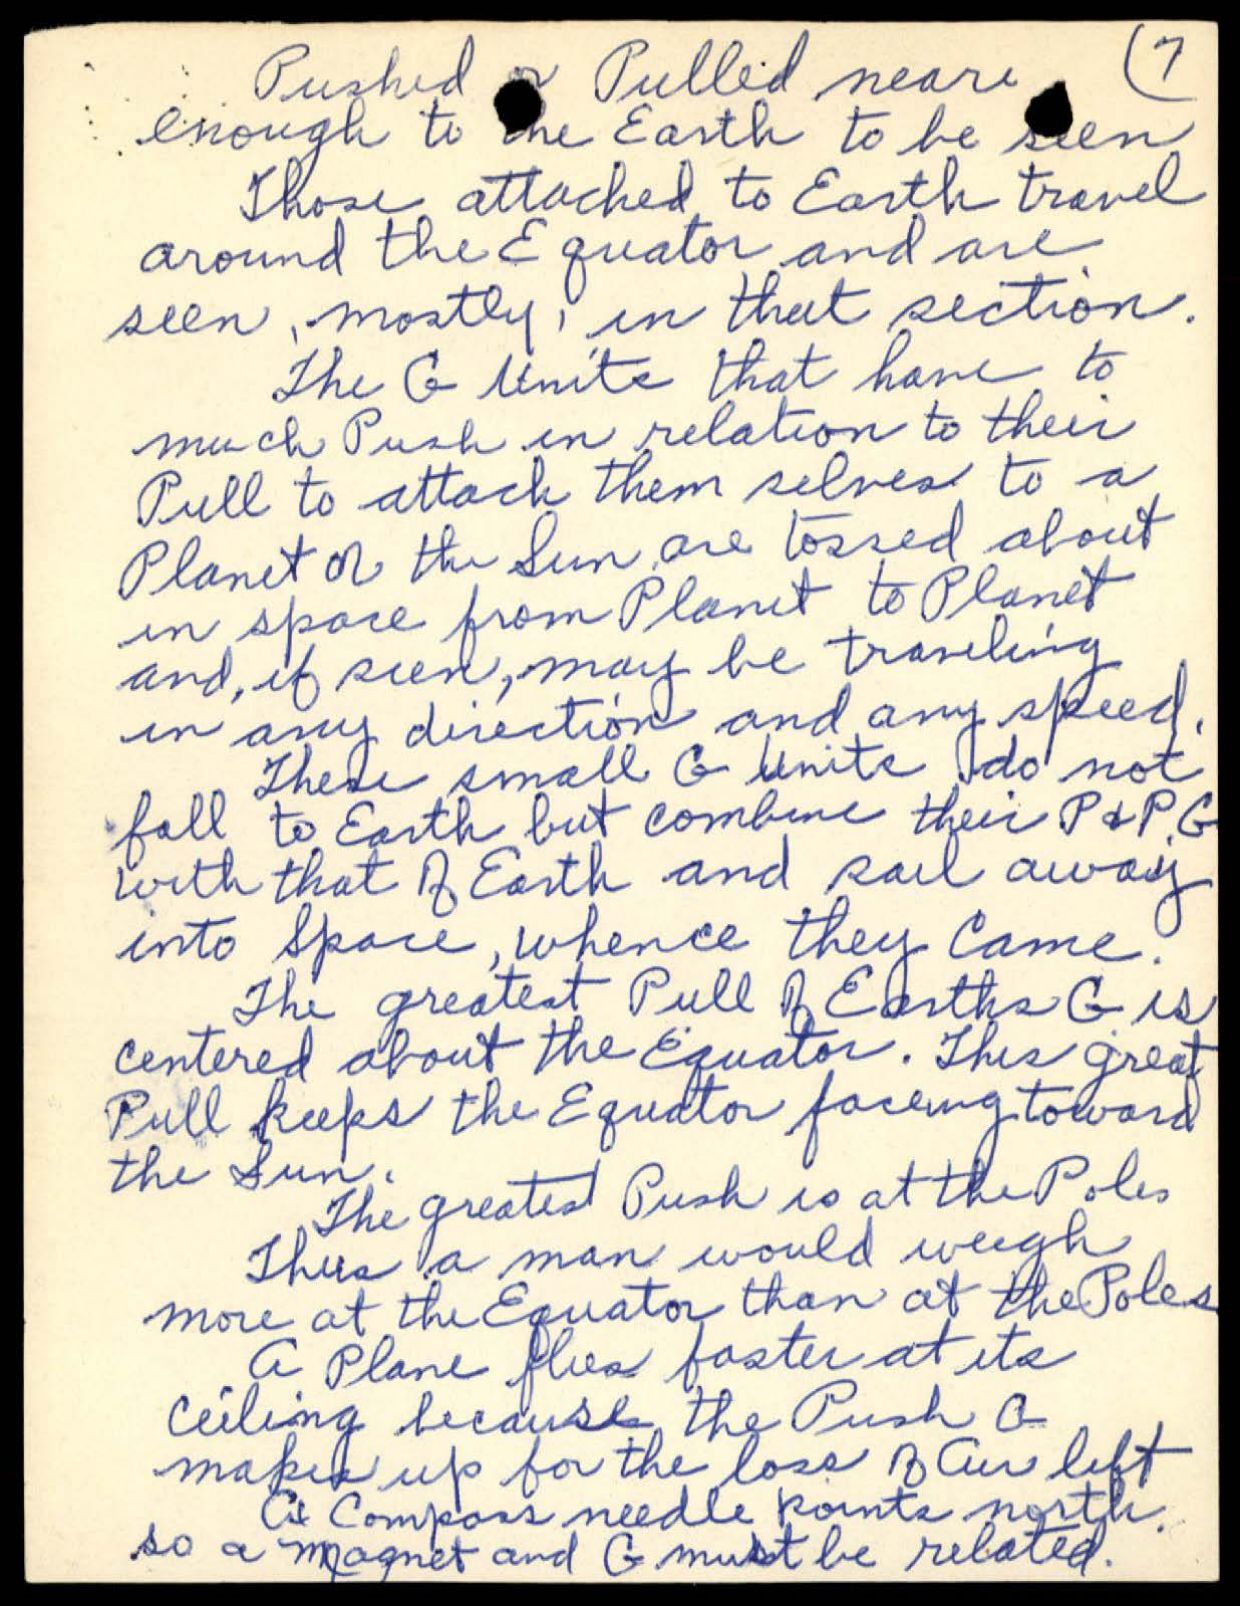 (7
Pushed or Pulled neare
enough to the Earth to be seen
Those attached to Earth travel
around the Equator and are
seen, mostly, in that section.
The G Units that have to
much Push in relation to their
Pull to attach them selves to a
Planet or the Sun are tossed about
in space from Planet to Planet
and, if seen, may be traveling
in any direction and any speed.
These small G Units do not
fall to Earth but combine their P & P. G
with that of Earth and sail away
into Space, whence they Came.
The greatest Pull of Earths G is
centered about the Equator. This great
Pull keeps the Equator faceing toward
the Sun.
The greatest Push is at the Poles
Thus a man would weigh
more at the Equator than at the Poles
A Plane flies faster at its
ceiling because the Push G
makes up for the loss of Air lift
A Compass needle points north.
so a magnet and G must be related.